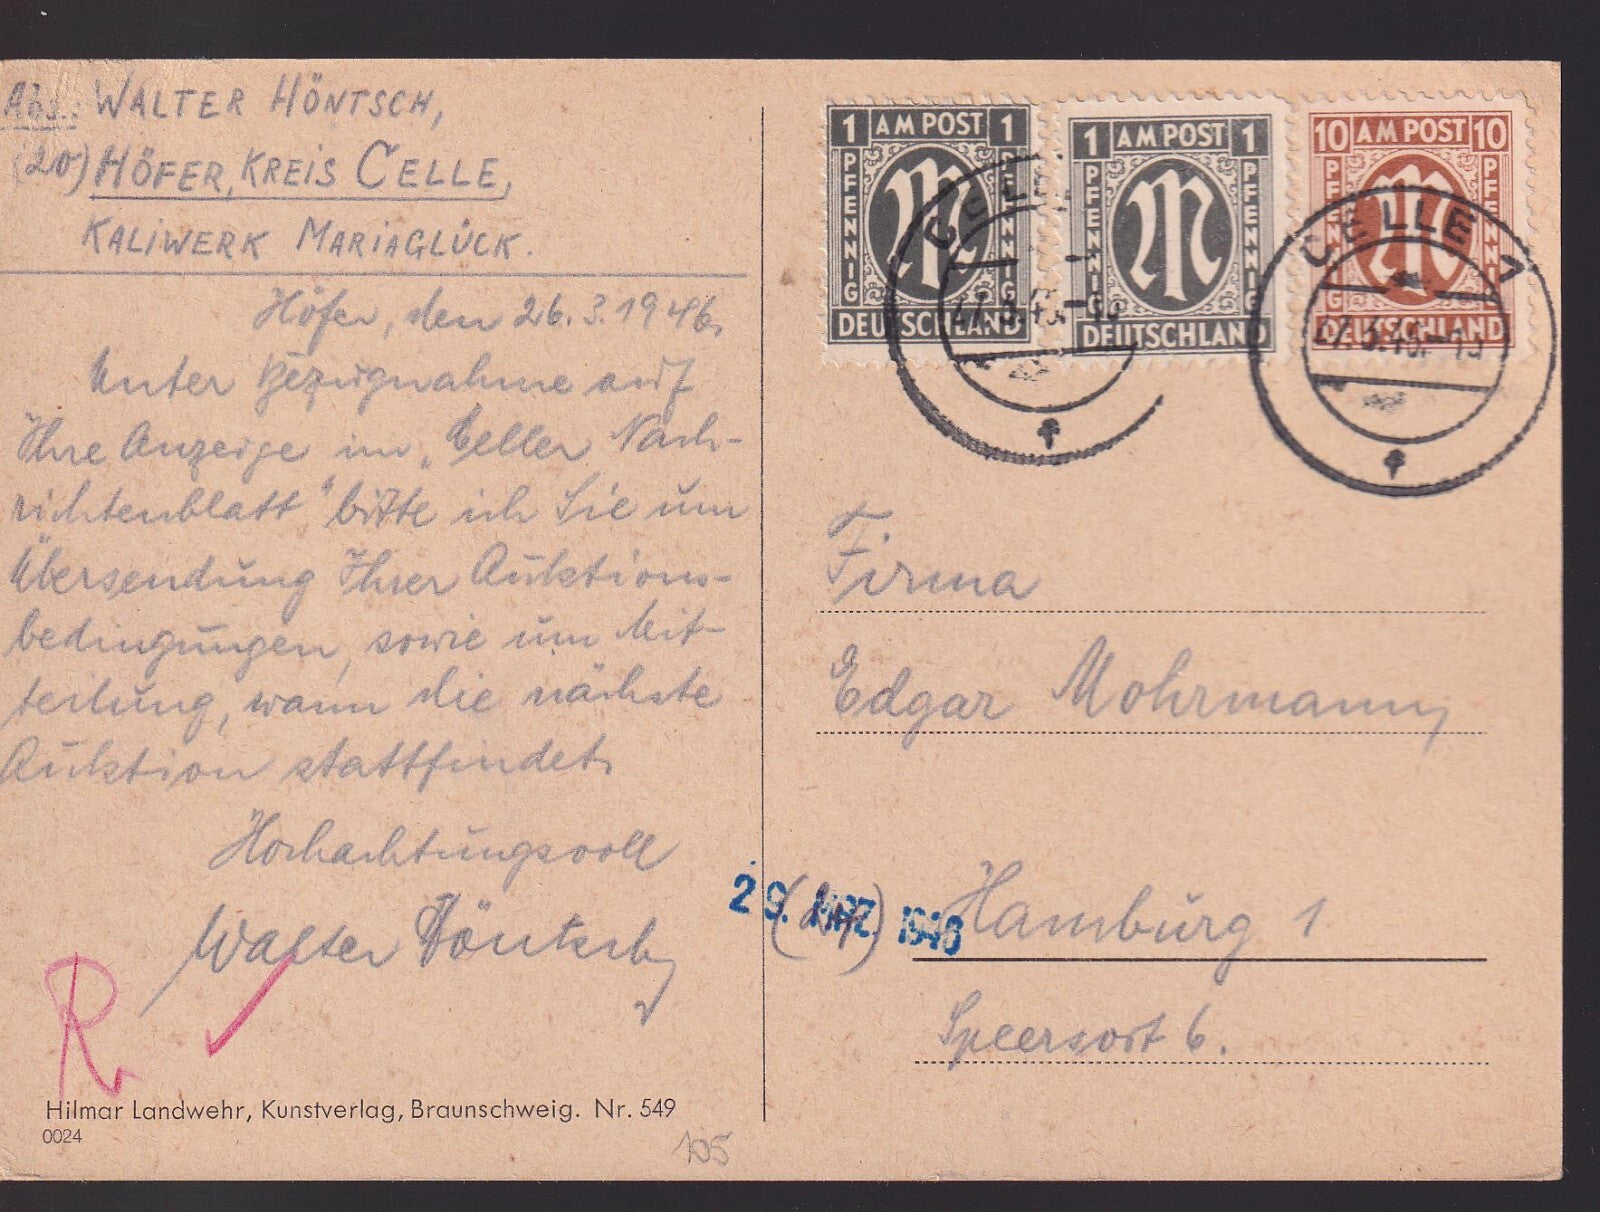 Abs.: WALTER HÖNTSCH,
(20) HÖFER, KREIS CELLE,
KALIWERK MARIAGLÜCK.
Höfer, den 26.3.1946.
Unter Bezugnahme auf
Ihre Anzeige im „Celler Nach-
richtenblatt" bitte ich Sie um
Übersendung Ihrer Auktions-
bedingungen, sowie um Mit-
teilung, wann die nächste
Auktion stattfindet.
Hochachtungsvoll
Walter Höntsch
R
Hilmar Landwehr, Kunstverlag, Braunschweig. Nr. 549
0024
105
1 AM POST 1
PFENNIG PFENNIG
M
DEUTSCHLAND
1 AM POST 1
PFENNIG PFENNIG
M
DEUTSCHLAND
10 AM POST 10
PFENNIG PFENNIG
M
DEUTSCHLAND
CELLE
f
CELLE 1
f
Firma
Edgar Mohrmann,
29. MRZ. 1946
(24) Hamburg 1
Speersort 6.